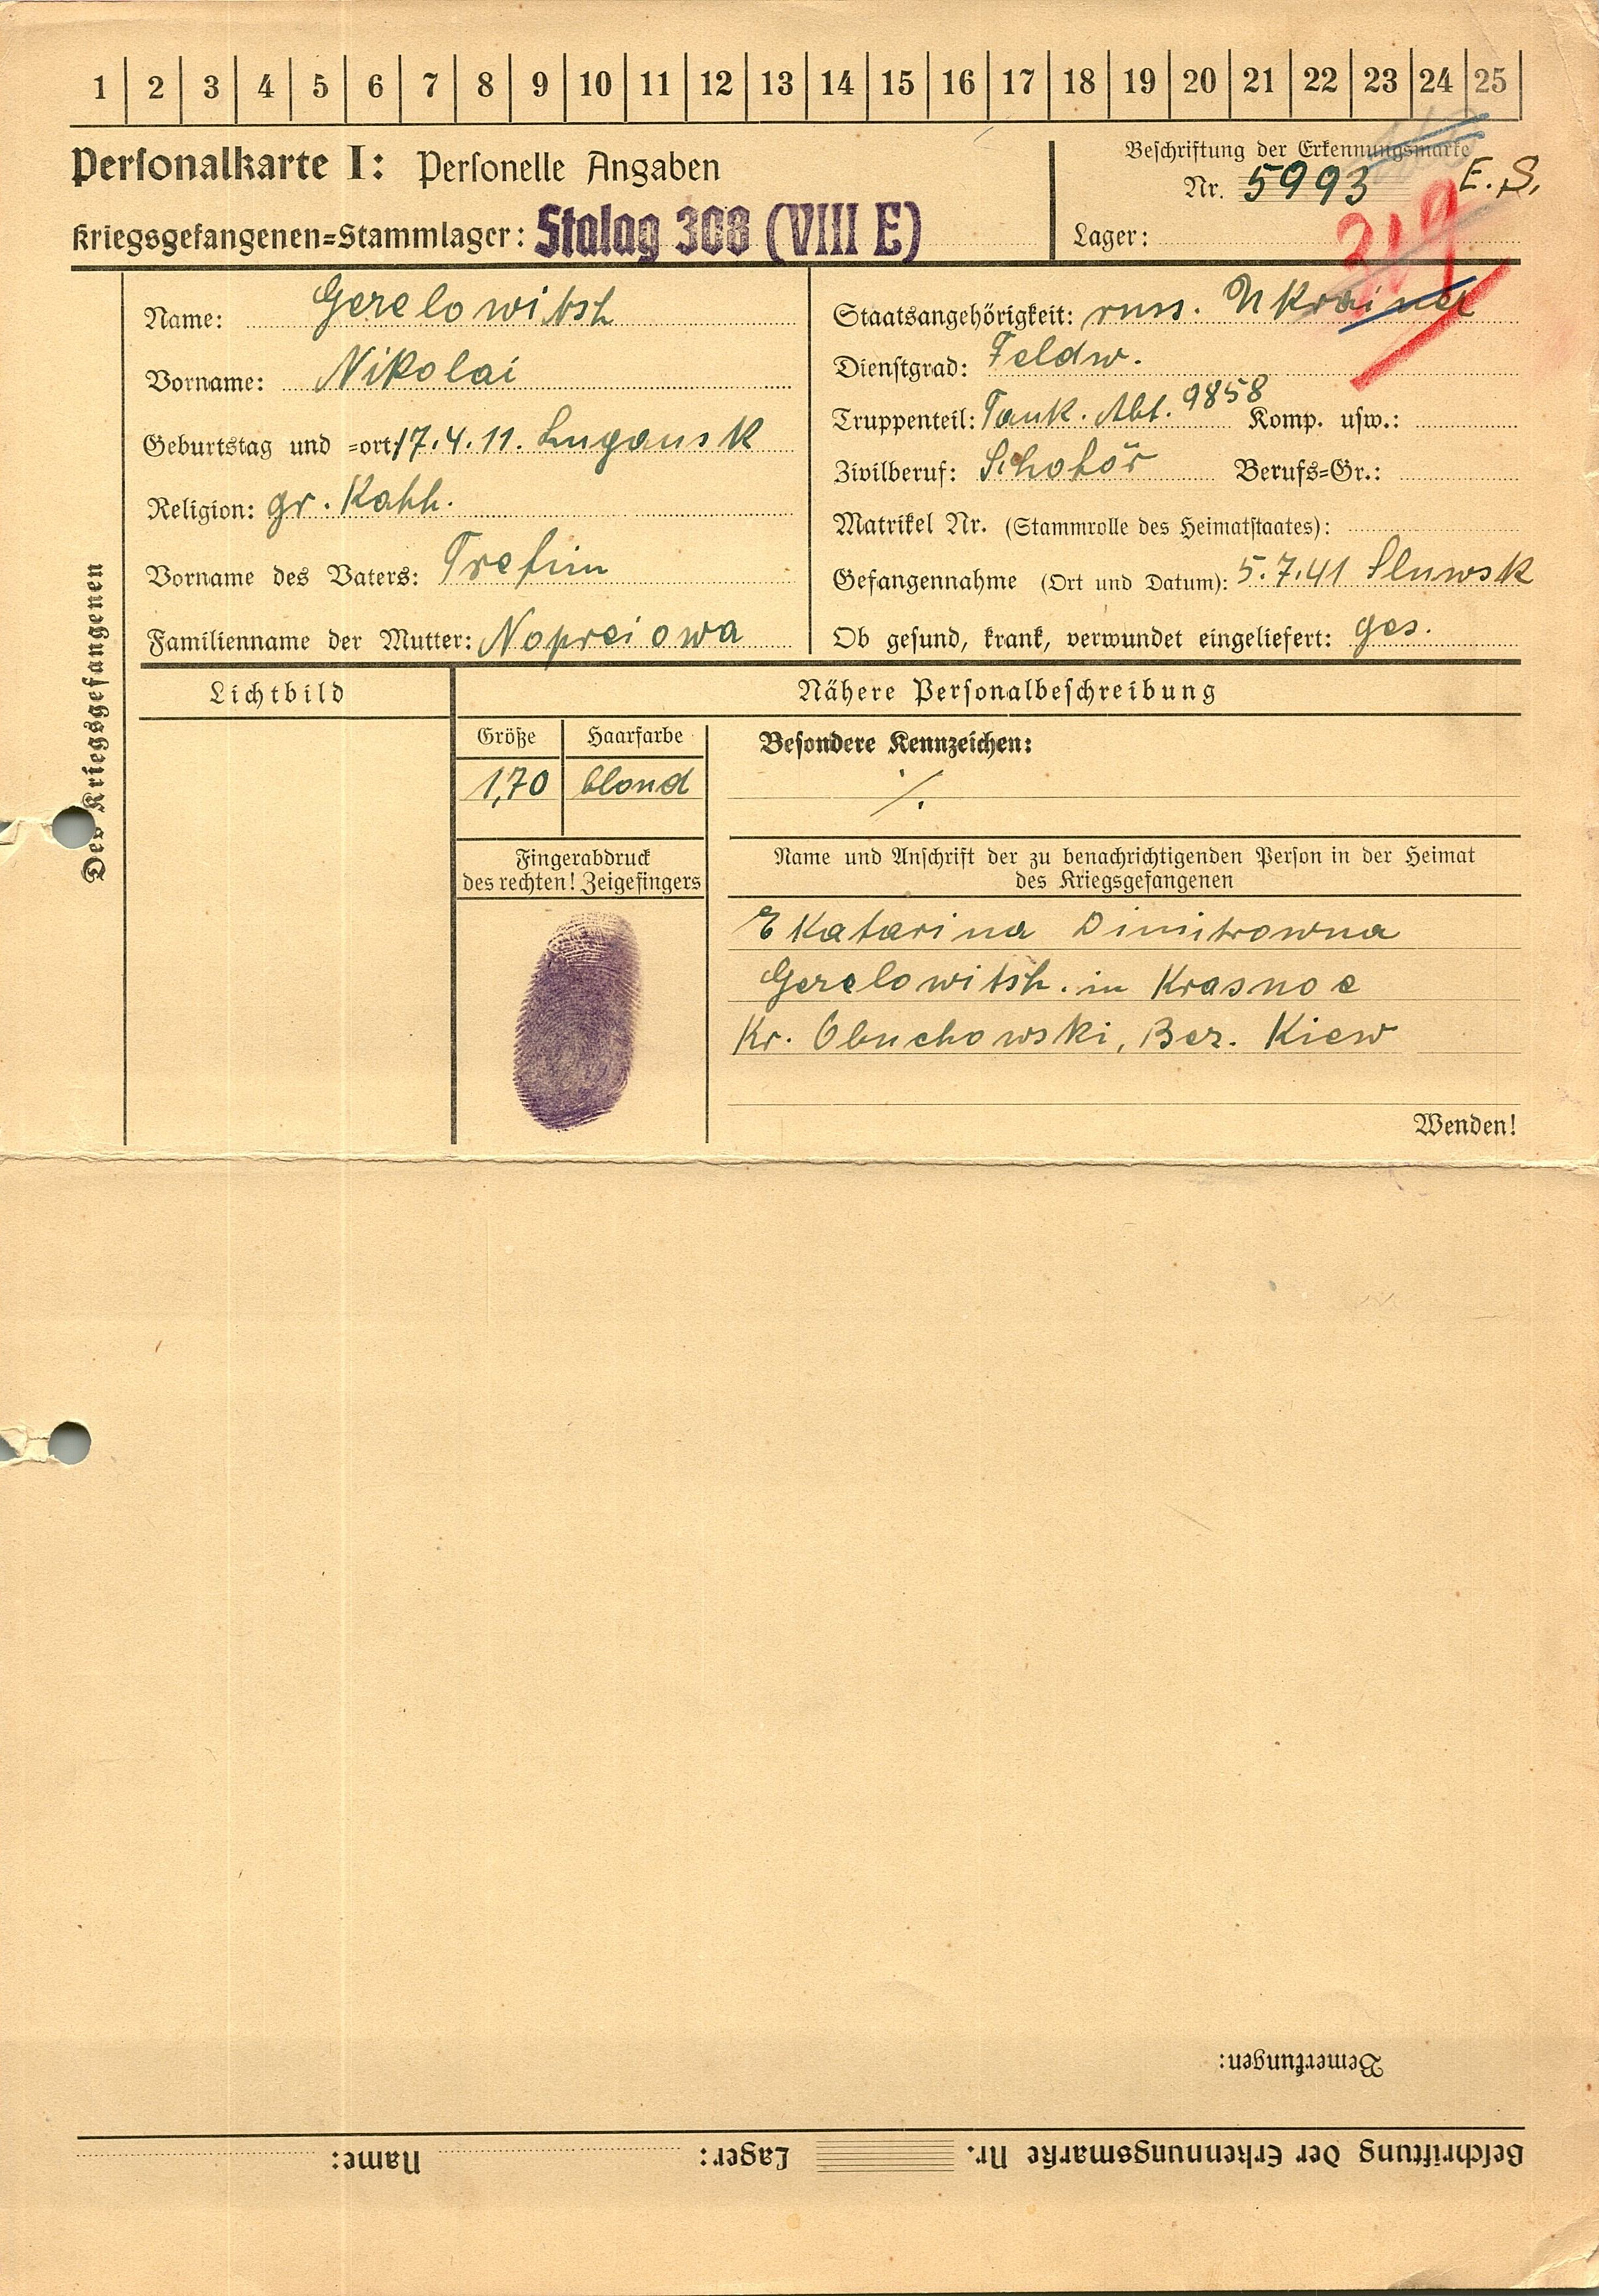 1 2 3 4 5 6 7 8 9 10 11 12 13 14 15 16 17 18 19 20 21 22 23 24 25
Personalkarte I: Personelle Angaben
Kriegsgefangenen=Stammlager: Stalag 308 (VIII E)
Beschriftung der Erkennungsmarke
Nr. 5993 E. S.
Lager:
319
Des Kriegsgefangenen
Name: Gerelowitsh
Vorname: Nikolai
Geburtstag und =ort: 17.4.11. Lugansk
Religion: gr. Kath.
Vorname des Vaters: Trefim
Familienname der Mutter: Nopreiowa
Staatsangehörigkeit: russ. Ukrainer
Dienstgrad: Feldw.
Truppenteil: Tank. Abt. 9858 Komp. usw.:
Zivilberuf: Schoför Berufs=Gr.:
Matrikel Nr. (Stammrolle des Heimatstaates):
Gefangennahme (Ort und Datum): 5.7.41 Sluwsk
Ob gesund, krank, verwundet eingeliefert: ges.
Lichtbild
Nähere Personalbeschreibung
Größe Haarfarbe
1,70 blond
Besondere Kennzeichen:
./.
Fingerabdruck
des rechten! Zeigefingers
Name und Anschrift der zu benachrichtigenden Person in der Heimat
des Kriegsgefangenen
Ekatarina Dimitrowna
Gerelowitsh. in Krasnoe
Kr. Obuchowski, Bez. Kiew
Wenden!
Bemerkungen:
Beschriftung der Erkennungsmarke Nr. Lager: Name: